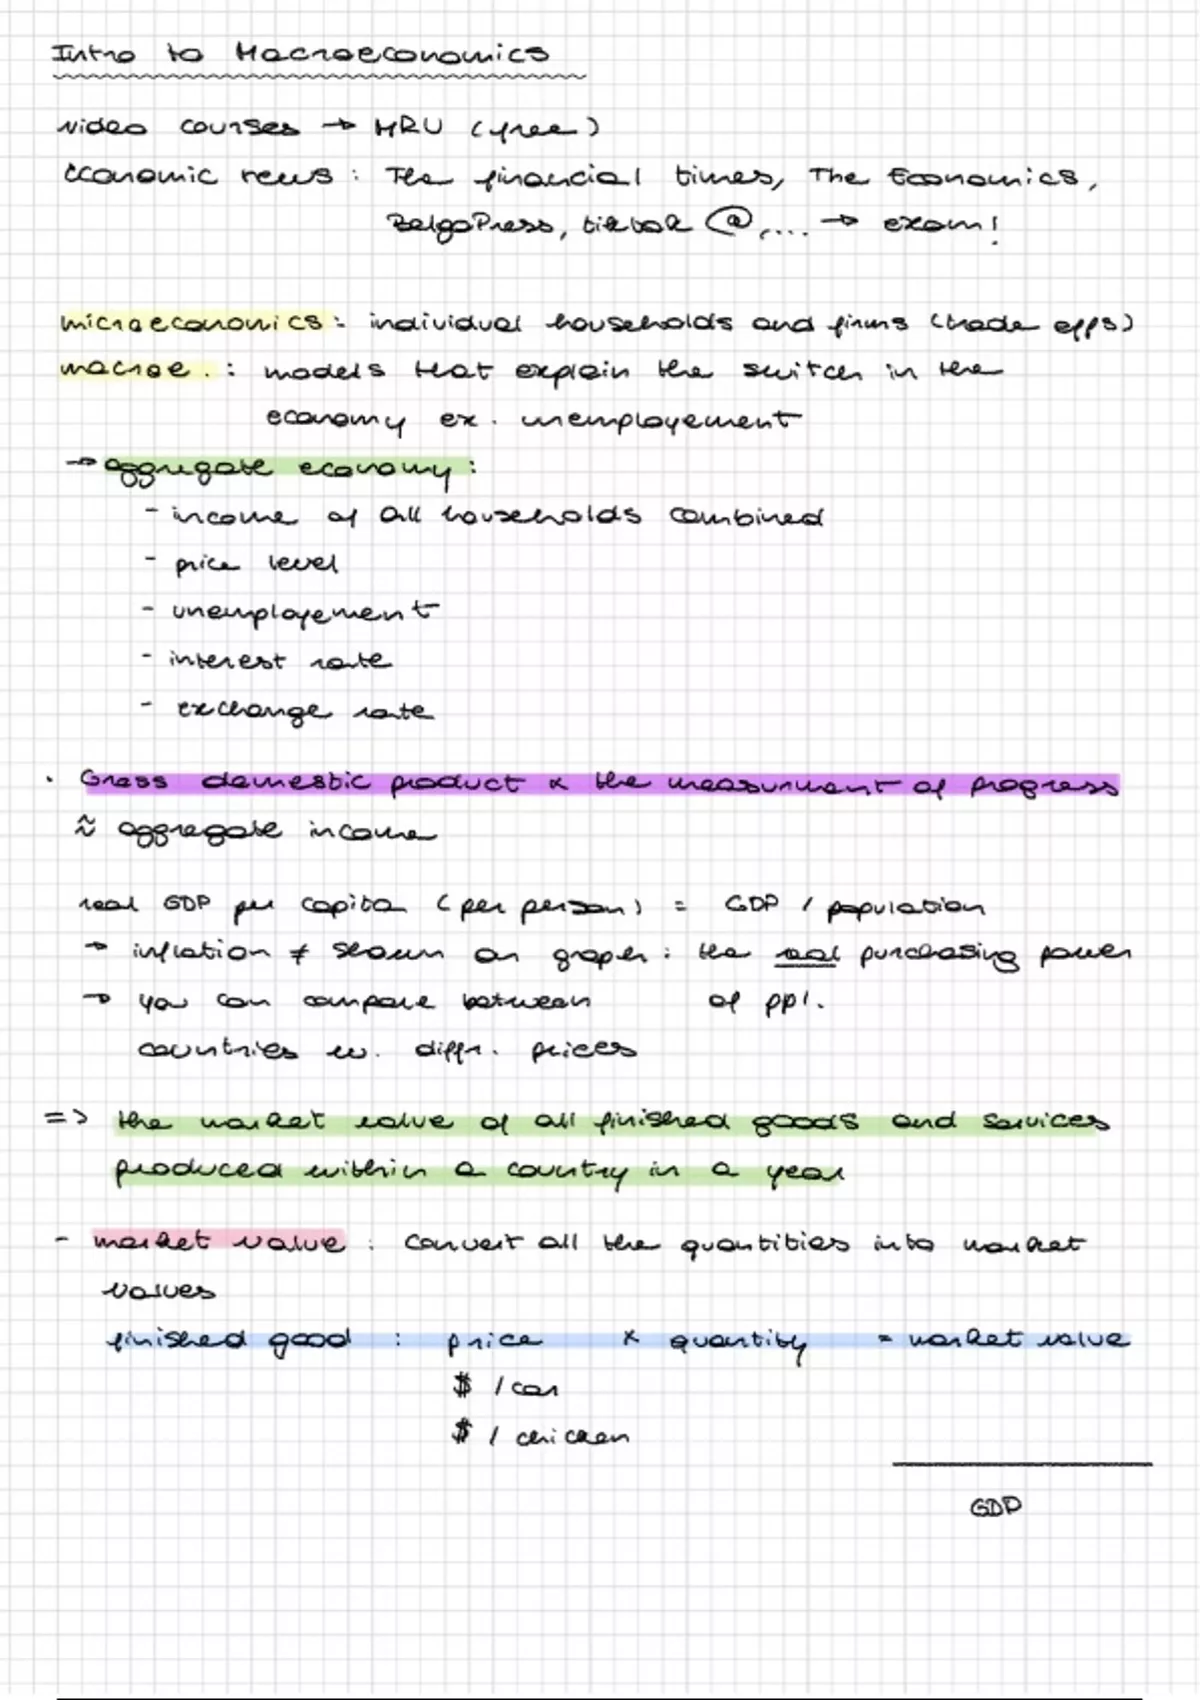 Intro to Macroeconomics
video courses → MRU (free)
Economic news : The financial times, The Economics,
BelgaPress, tiktok @,.... → exam!
microeconomics : individual households and firms (trade offs)
macroe. : models that explain the switch in the
economy ex. unemployement
→ aggregate economy :
- income of all households combined
- price level
- unemployement
- interest rate
- exchange rate
· Gross domestic product & the measurment of progress
≈ aggregate income
real GDP per capita (per person) = GDP / population
→ inflation ≠ shown on graph : the real purchasing power
→ you can compare between of ppl.
countries w. diffr. prices
=> the market value of all finished goods and services
produced within a country in a year
- market value : convert all the quantities into market
values
finished good : price x quantity = market value
$ / car
$ / chicken
GDP